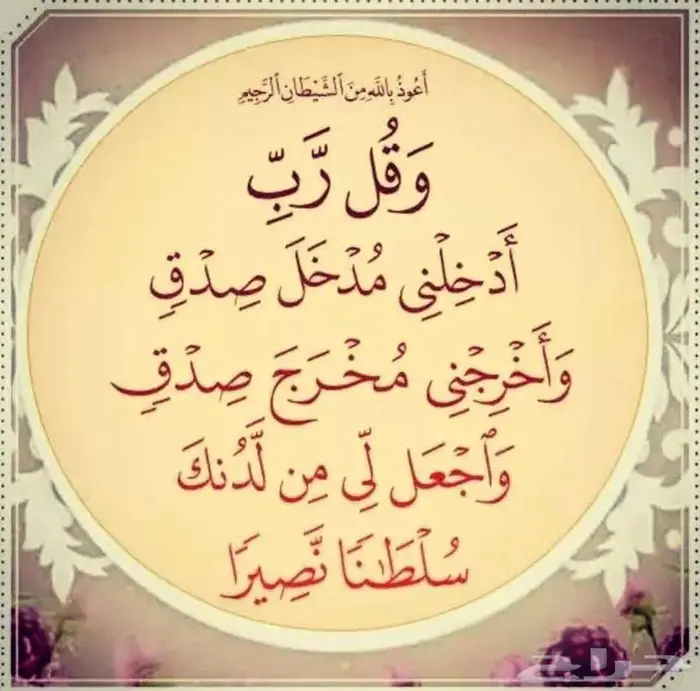 أَعُوذُ بِاللَّهِ مِنَ ٱلشَّيْطَانِ ٱلرَّجِيمِ
وَقُل رَّبِّ
أَدْخِلْنِى مُدْخَلَ صِدْقٍ
وَأَخْرِجْنِى مُخْرَجَ صِدْقٍ
وَٱجْعَل لِّى مِن لَّدُنكَ
سُلْطَٰنًا نَّصِيرًا
حراج